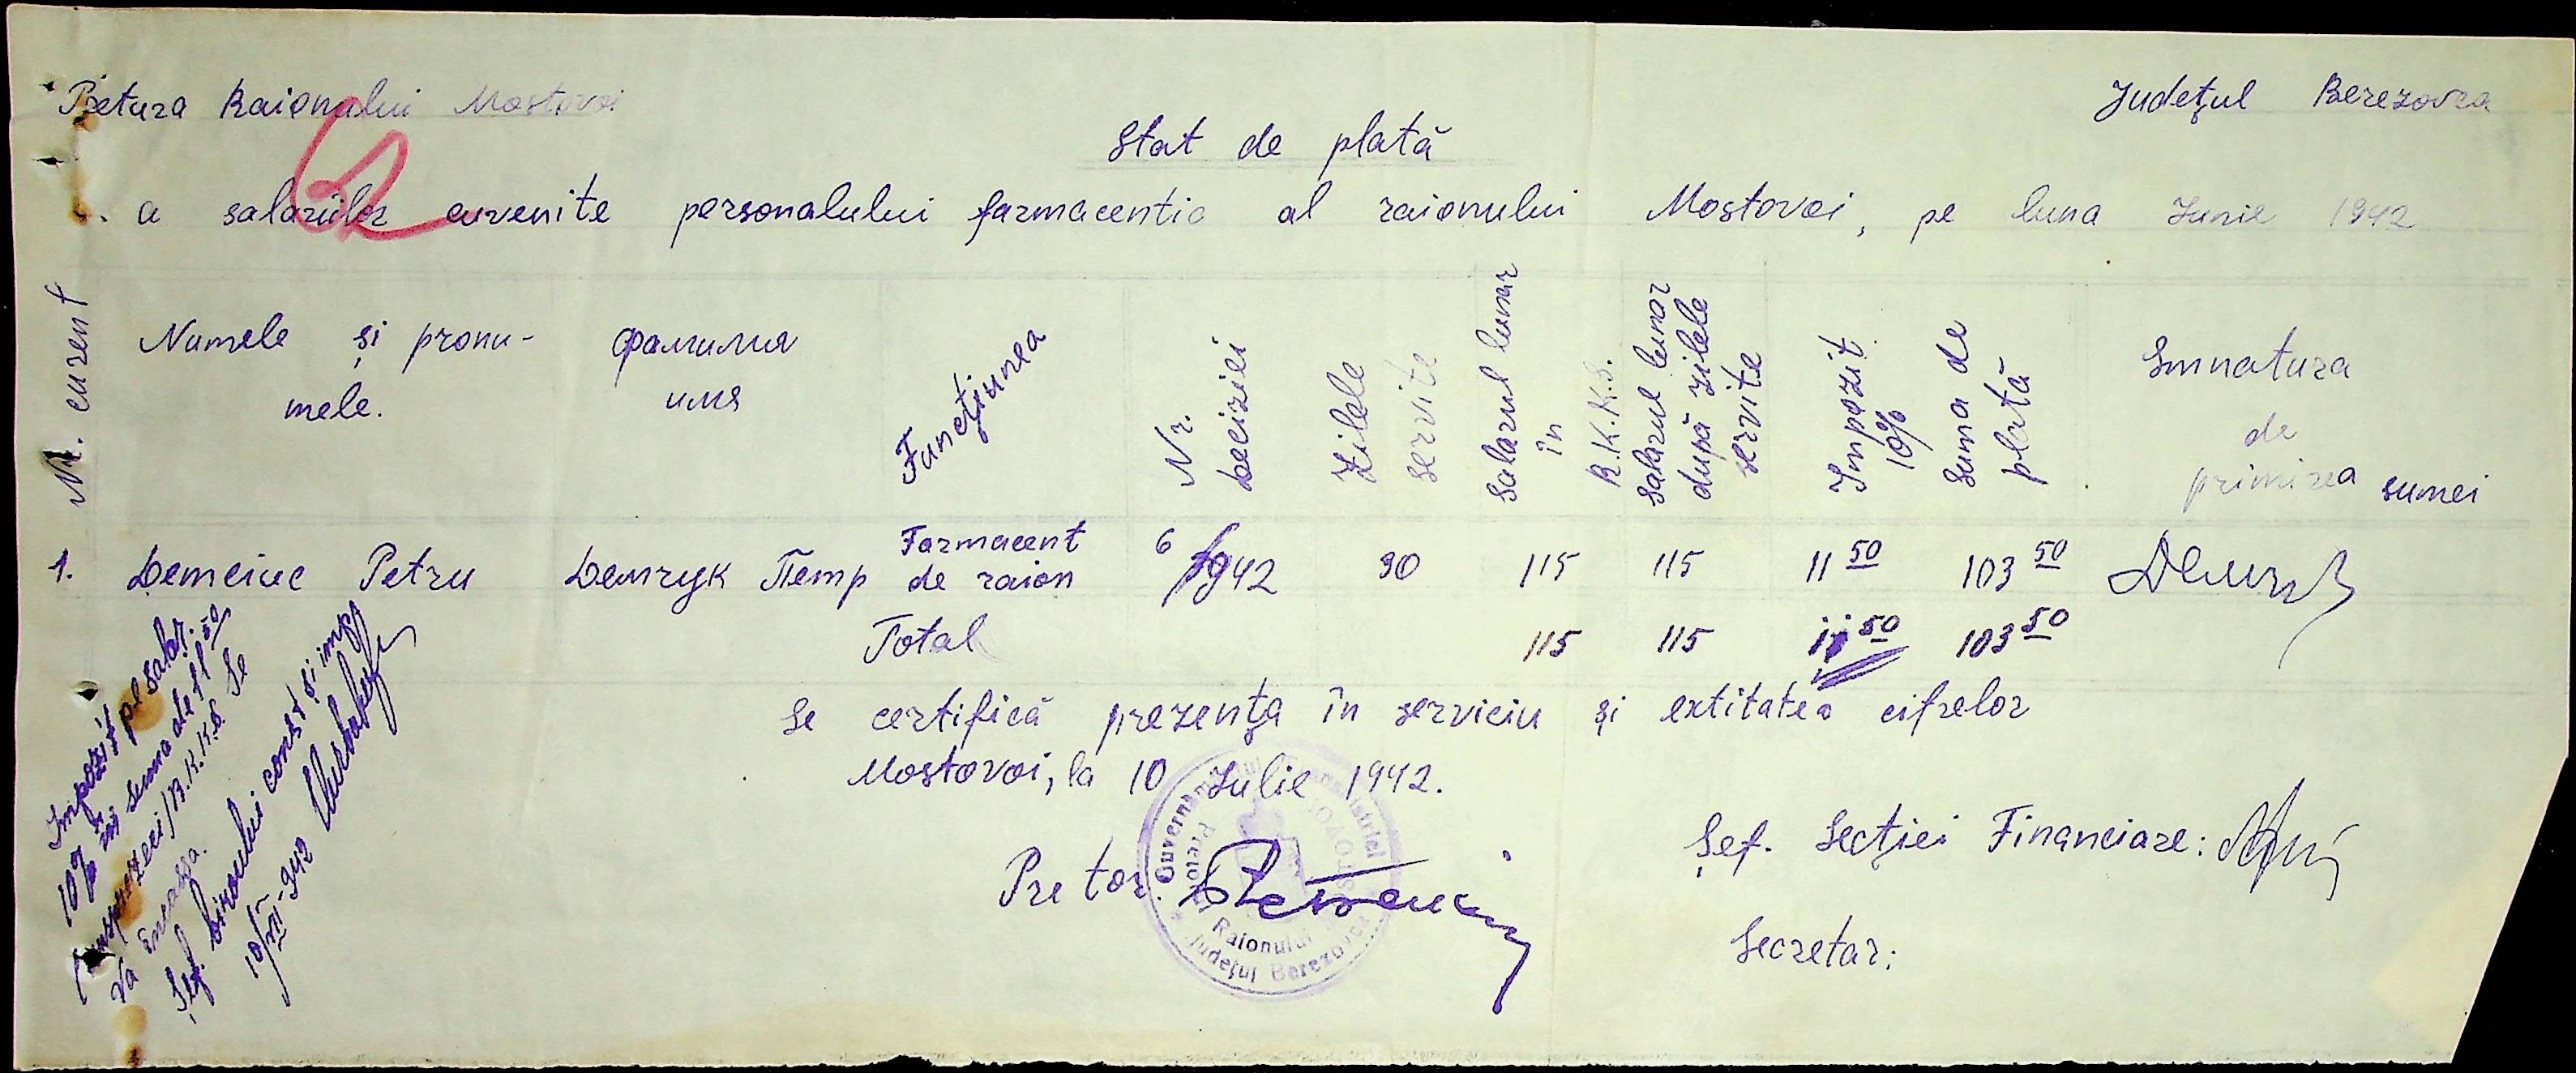 Pretura Raionului Mostovoi
Județul Berezovca
Stat de plată
a salariilor cuvenite personalului farmaceutic al raionului Mostovoi, pe luna Iunie 1942
Nr. curent
Numele și pronu-
mele.
Фамилия
имя
Funcțiunea
Nr.
Deciziei
Zilele
servite
Salarul lunar
în
R.K.K.S.
Salarul lunar
după zilele
servite
Impozit
10%
Suma de
plată
Smnatura
de
primirea sumei
1. Demciuc Petru Демчук Петр Farmacent de raion 6/942 30 115 115 11 50 103 50
Total 115 115 11 50 103 50
Se certifică prezența în serviciu și extitatea cifrelor
Mostovoi, la 10 Iulie 1942.
Pretor:
Șef. Secției Financiare:
Secretar:
Impozit pe salar.
10% în suma de 11 50
R.K.K.S. Se
va încasa.
Șef. biroului const și imp
10/VII-942
Guvernământul Transnistriei
Raionului
Județul Berezovca